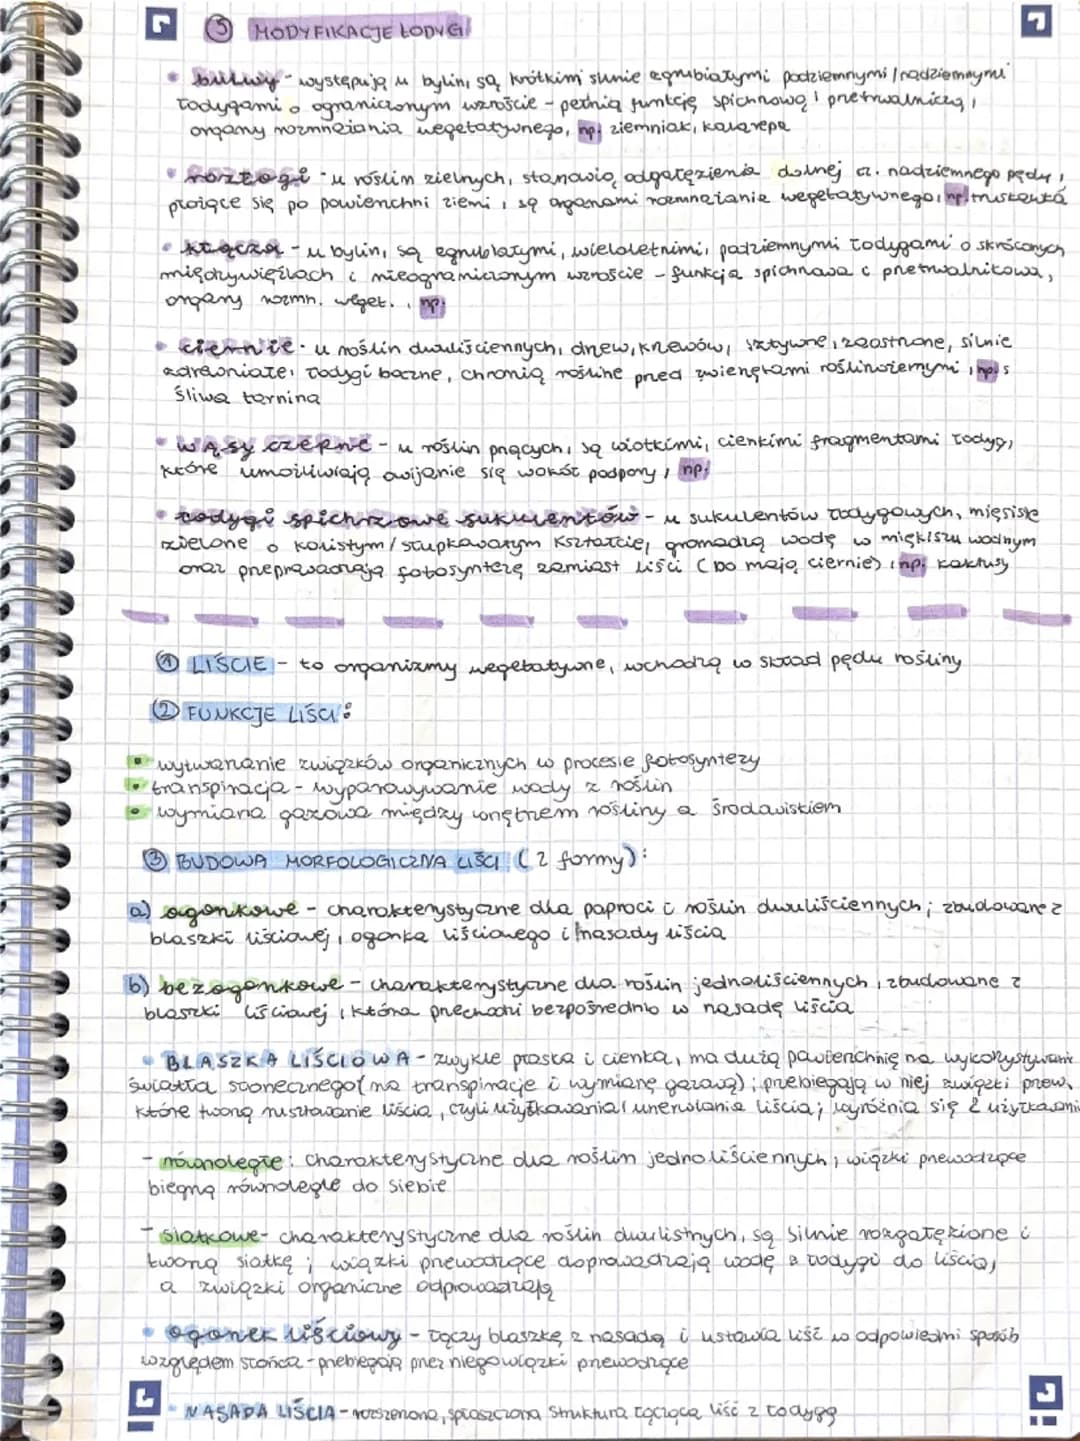 ⑤ MODYFIKACJE ŁODYGI
• bulwy - występują u bylin, są krótkimi silnie zgrubiałymi podziemnymi / nadziemnymi
łodygami o ograniczonym wzroście - pełnią funkcję spichrzową i przetrwalniczą,
organy rozmnażania wegetatywnego, np. ziemniak, kalarepa
• rozłogi - u roślin zielnych, stanowią odgałęzienia dolnej cz. nadziemnego pędu,
płożące się po powierzchni ziemi, są organami rozmnażania wegetatywnego, np. truskawka
• kłącza - u bylin, są zgrubiałymi, wieloletnimi, podziemnymi łodygami o skróconych
międzywęźlach i nieograniczonym wzroście - funkcja spichrzowa i przetrwalnikowa,
organy rozmn. weget., np.
• ciernie - u roślin dwuliściennych, drzew, krzewów, sztywne, zaostrzone, silnie
zdrewniałe, łodygi boczne, chronią roślinę przed zwierzętami roślinożernymi, np.
śliwa tarnina
• wąsy czepne - u roślin pnących, są wiotkimi, cienkimi fragmentami łodygi,
które umożliwiają owijanie się wokół podpory, np.
• łodygi spichrzowe sukulentów - u sukulentów łodygowych, mięsiste
zielone o kolistym / słupkowatym kształcie, gromadzą wodę w miękiszu wodnym
oraz przeprowadzają fotosyntezę zamiast liści (bo mają ciernie), np. kaktusy
① LIŚCIE - to organizmy wegetatywne, wchodzą w skład pędu rośliny
② FUNKCJE LIŚCI:
• wytwarzanie związków organicznych w procesie fotosyntezy
• transpiracja - wyparowywanie wody z roślin
• wymiana gazowa między wnętrzem rośliny a środowiskiem
③ BUDOWA MORFOLOGICZNA LIŚCI (2 formy):
a) ogonkowe - charakterystyczne dla paproci i roślin dwuliściennych; zbudowane z
blaszki liściowej, ogonka liściowego i nasady liścia
b) bezogonkowe - charakterystyczne dla roślin jednoliściennych, zbudowane z
blaszki liściowej, która przechodzi bezpośrednio w nasadę liścia
• BLASZKA LIŚCIOWA - zwykle płaska i cienka, ma dużą powierzchnię na wykorzystywanie
światła słonecznego (na transpirację i wymianę gazową); przebiegają w niej wiązki przew.
które tworzą rusztowanie liścia, czyli użyłkowania / unerwienia liścia; wyróżnia się 2 użyłkowania
- równoległe: charakterystyczne dla roślin jednoliściennych, wiązki przewodzące
biegną równolegle do siebie
- siatkowe - charakterystyczne dla roślin dwulistnych, są silnie rozgałęzione i
tworzą siatkę; wiązki przewodzące doprowadzają wodę z łodygi do liścia,
a związki organiczne odprowadzają
• ogonek liściowy - łączy blaszkę z nasadą i ustawia liść w odpowiedni sposób
względem słońca - przebiegają przez niego wiązki przewodzące
• NASADA LIŚCIA - rozszerzona, spłaszczona struktura łącząca liść z łodygą